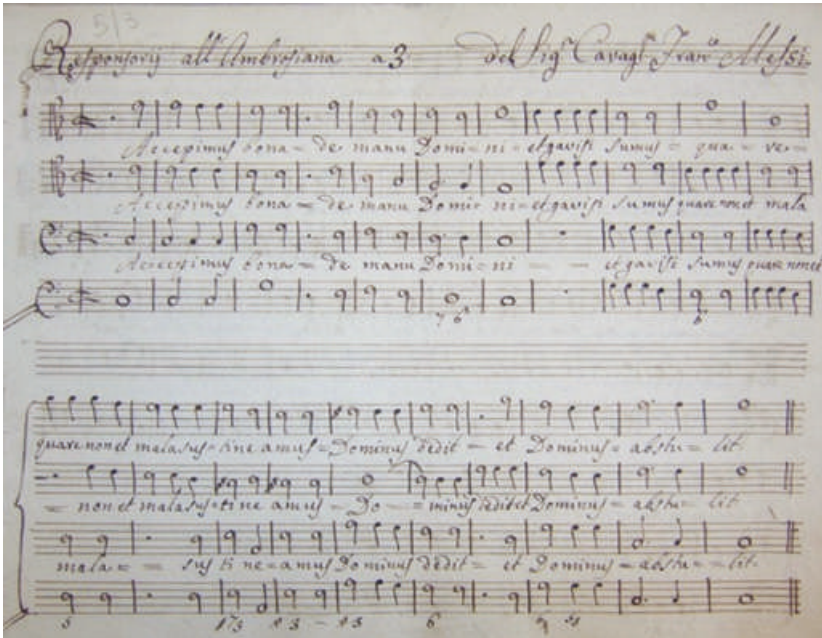 5/3
Responsorij all'Ambrosiana a 3 del Sig.r Cavag.r Fran.co Alessi
Accepimus bona = de manu Domi = ni = et gavisi sumus = qua = re =
Accepimus bona = de manu Domi = ni = et gavisi sumus quare non et mala
Accepimus bona = de manu Domi = ni = et gavisi sumus quare non et
7 6 6
quare non et mala sus = tine amus = Dominus dedit = et Dominus = abstu = lit.
= non et mala sus = ti ne amus = Do = = minus dedit et Dominus = abstu = lit
mala = = sus ti ne = amus Dominus dedit = et Dominus = abstu = lit.
5 6